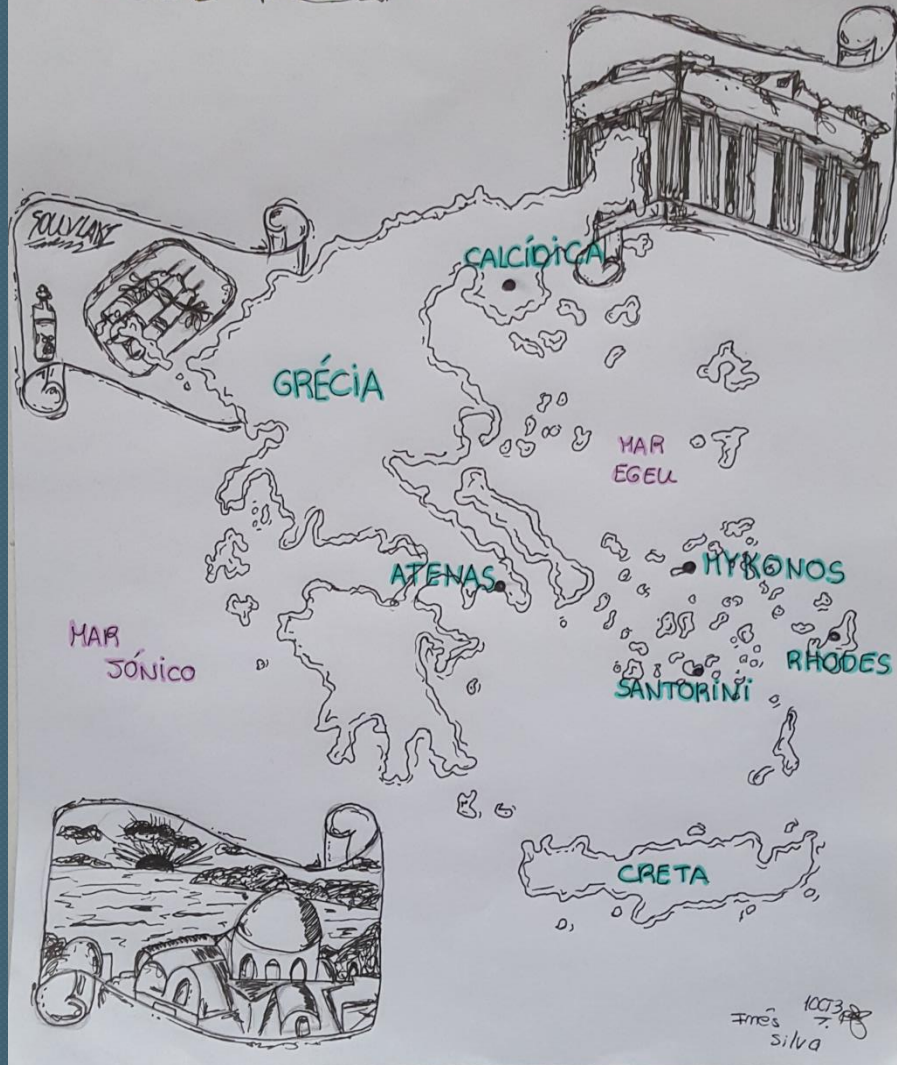 SOUVLAKI
CALCÍDICA
GRÉCIA
MAR
EGEU
ATENAS
MYKONOS
MAR
JÓNICO
RHODES
SANTORINI
CRETA
Inês
Silva
10CT3